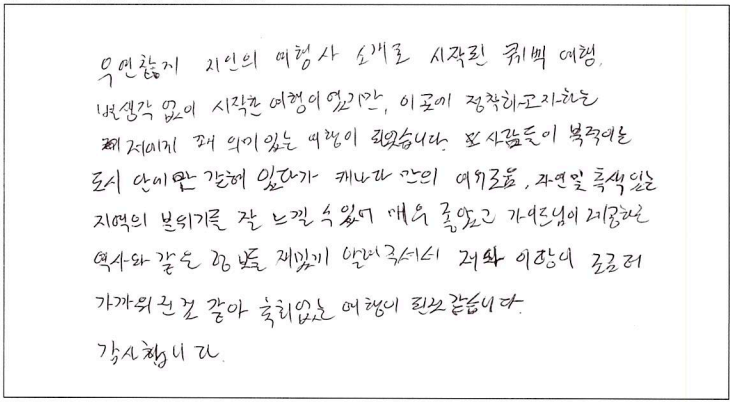 우연찮게 지인의 여행사 소개로 시작된 퀘벡 여행.
별생각 없이 시작한 여행이었지만, 이곳에 정착하고자하는
저에게 꽤 의미있는 여행이 되었습니다. 또 사람들이 북적이는
도시 안에만 갇혀 있다가 캐나다 만의 여유로움, 자연 및 특색있는
지역의 분위기를 잘 느낄 수 있어 매우 좋았고 가이드님이 제공하는
역사와 같은 정보들 재밌게 알려주셔서 저와 이 땅이 조금더
가까워진것 같아 후회없는 여행이 된것 같습니다.
감사합니다.